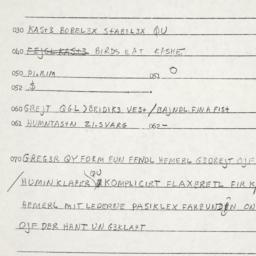 030 KAST3 BOBEL3X STABIL3X QU
040 FEJGL KAST3 BIRDS EAT KASHE
050 PILMIM 051 O
052 $
060 GBEJT QGL) BEIDIKS VEST/BAJNDL.FINAFIST
061 HUMNTASTN ZI.SVARG 062 -
070 GREGSR QY FORM FUN FENDL HEMERL GEDREJT OJF
QU
/HUMIN KLAPER KOMPLICIRT FLAXBRETL FIR
HEMERL MIT LEDERNE PASIKLEX FARBUNDN ON
OJF DER HANT UN G3KLAPT